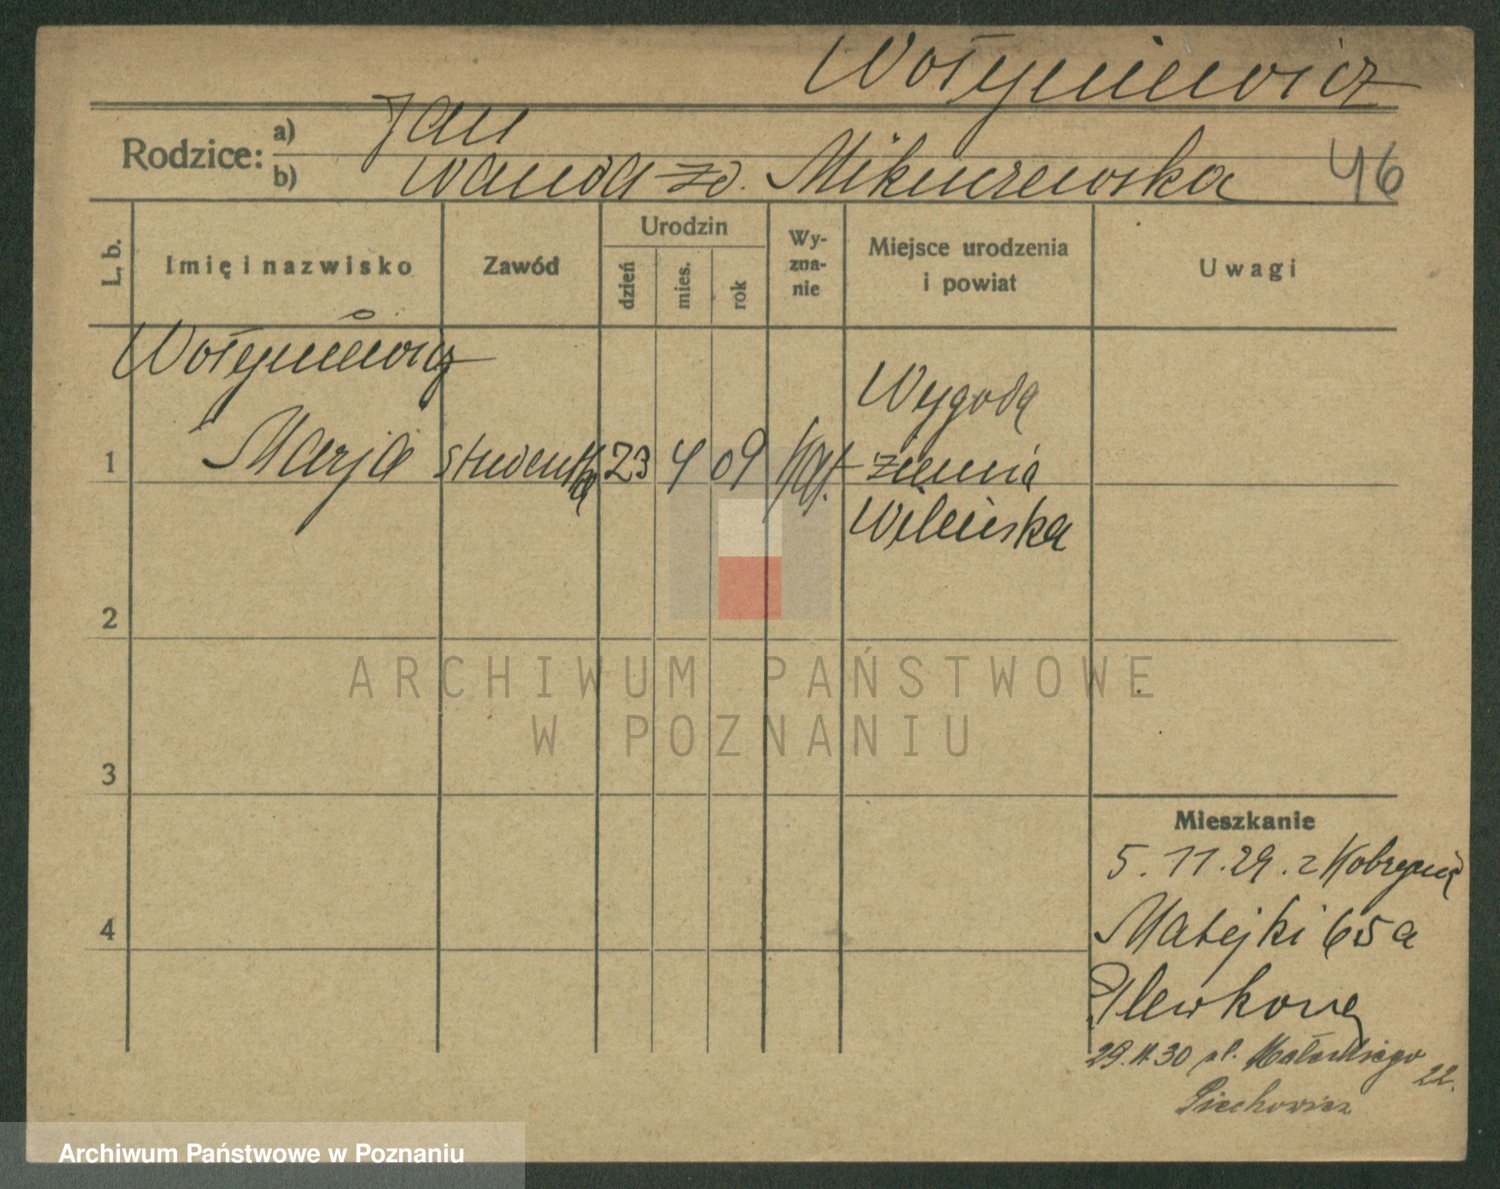 Wołyniewicz
Rodzice: a) Jan
b) Wanda zd. 46
L. b. Imię i nazwisko Zawód Urodzin dzień mies. rok Wy-zna-nie Miejsce urodzenia i powiat Uwagi
Wołyniewicz
1 Marja studentka 23 4 09 kat.
Wygoda
ziemia
Wileńska
2
3
4
ARCHIWUM PAŃSTWOWE
W POZNANIU
Mieszkanie
5.11.29. z Kobrynia
Matejki 65a
29.4.30 pl. 22.
Piechowicz
Archiwum Państwowe w Poznaniu